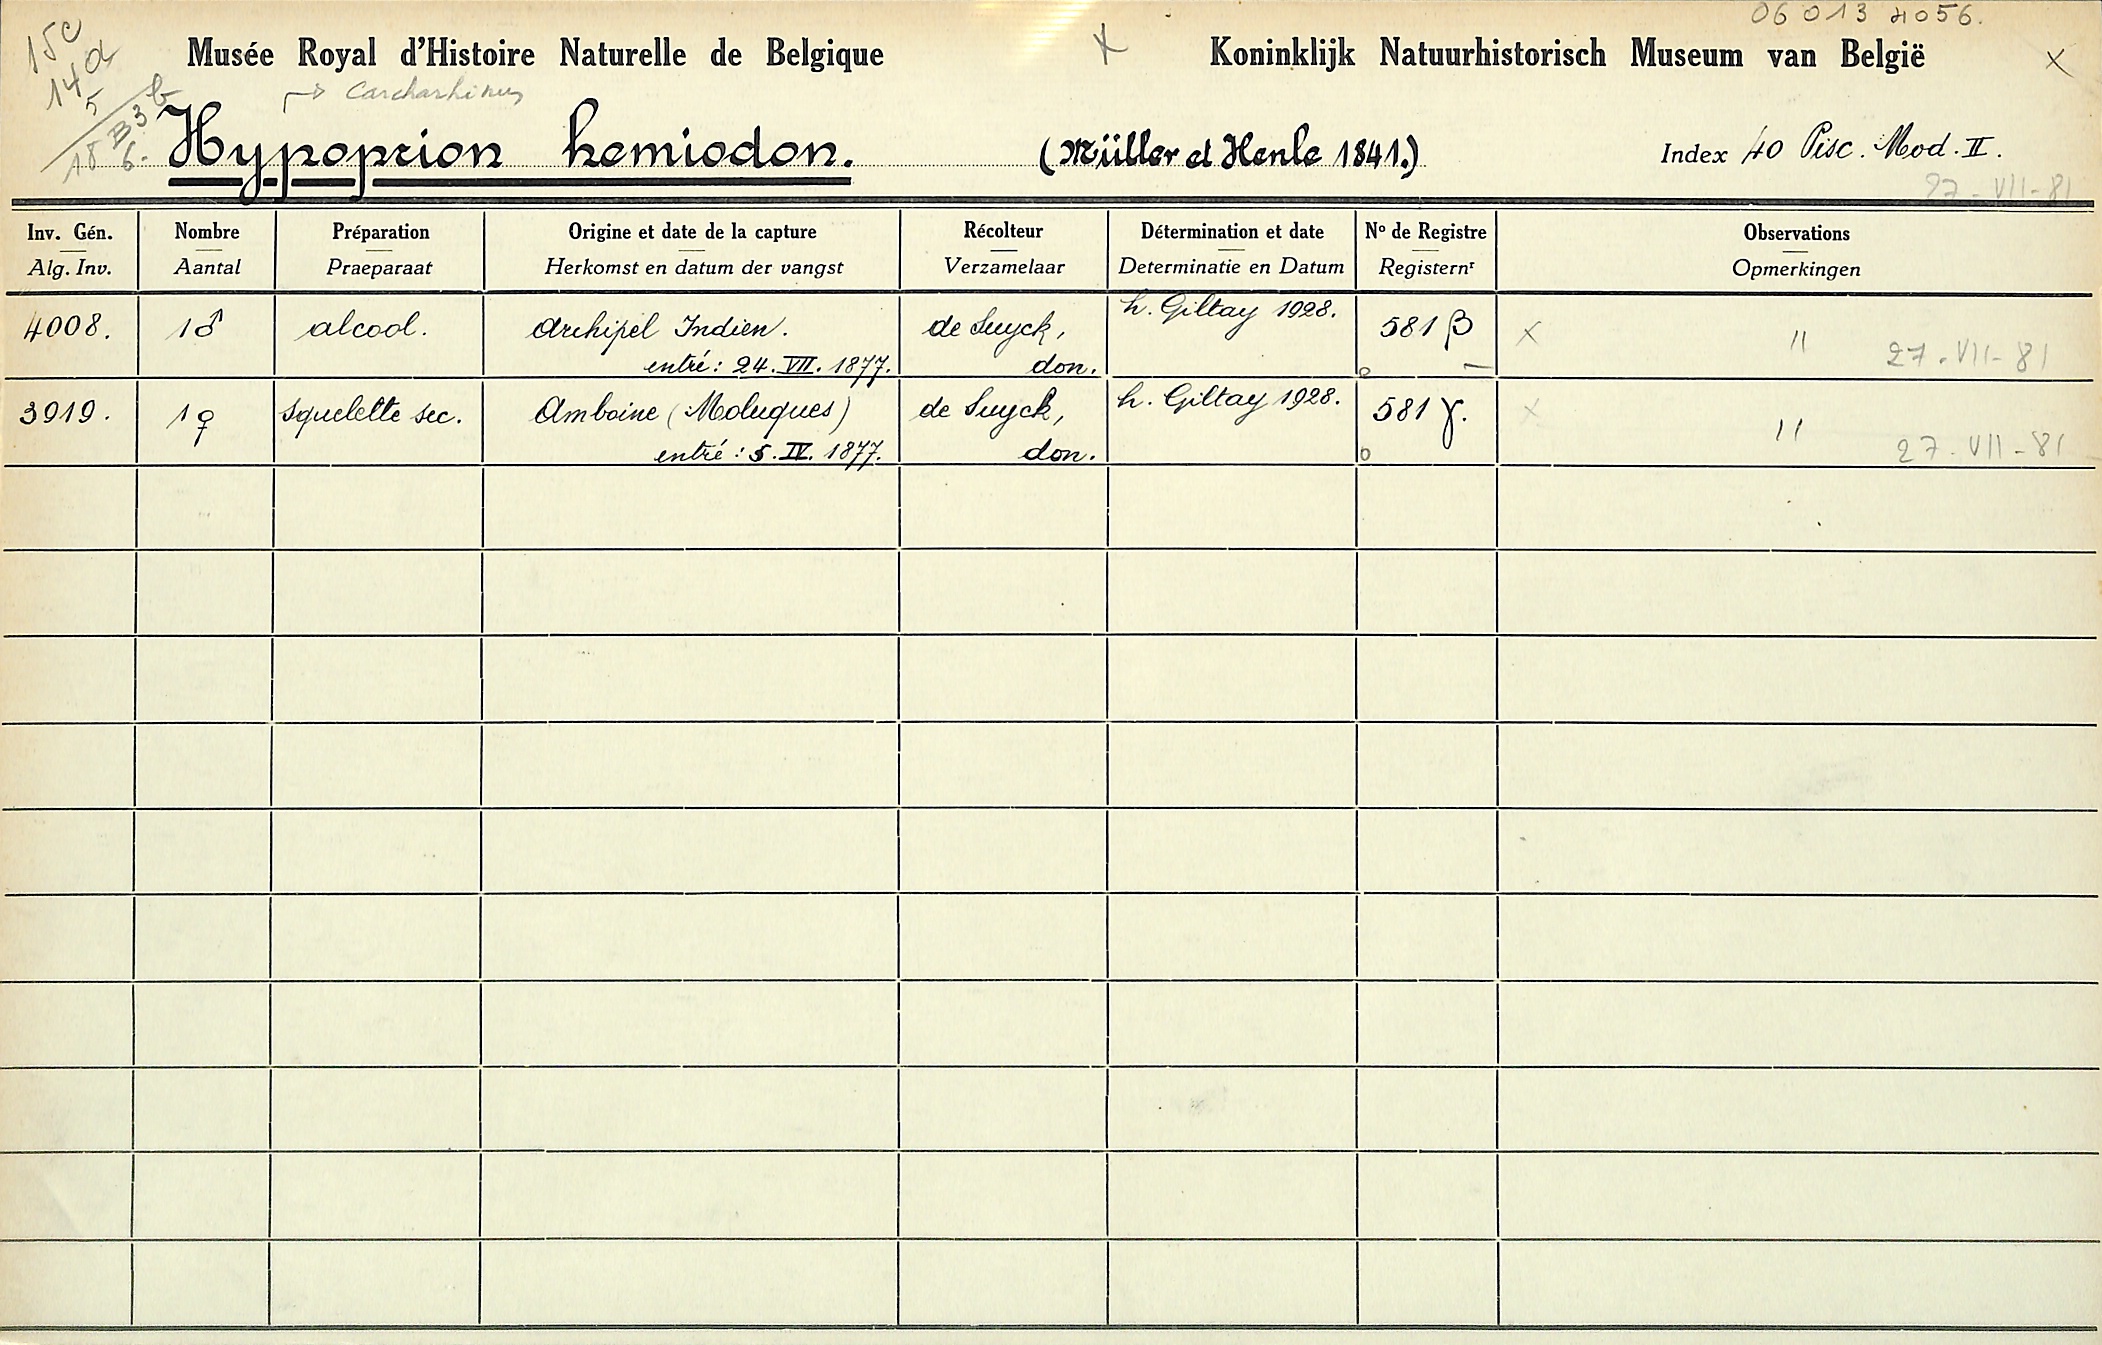 06 013 4056.
15c
14 a
5
B 3 b
18 6.
Musée Royal d'Histoire Naturelle de Belgique x Koninklijk Natuurhistorisch Museum van België x
→ Carcharhinus
Hypoprion hemiodon. (Müller et Henle 1841.) Index 40 Pisc. Mod. II.
27-VII-81
Inv. Gén. Nombre Préparation Origine et date de la capture Récolteur Détermination et date Nº de Registre Observations
Alg. Inv. Aantal Praeparaat Herkomst en datum der vangst Verzamelaar Determinatie en Datum Registernr Opmerkingen
4008. 1♂ alcool. Archipel Indien. de Luyck, L. Giltay 1928. 581 β x "
entré: 24. VII. 1877. don. 27-VII-81
3919. 1♀ Squelette sec. Amboine (Moluques) de Luyck, L. Giltay 1928. 581 γ. x "
entré: 5. IV. 1877. don. 27-VII-81